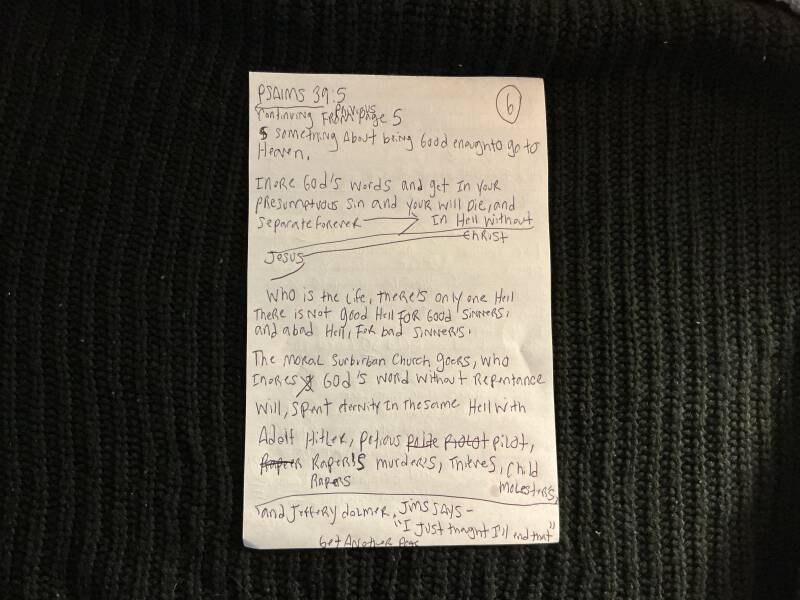 PSAlMS 39:5
6
Continuing From Previous Page 5
something About being Good enough to go to
Heaven.
Inore God's words and get In your
presumptuous sin and your will Die, and
separate forever → In Hell without
Christ
Jesus
Who is the Life, there's only one Hell
There is Not good Hell FOR GOOD SINNERS,
and a bad Hell, For bad SINNER'S.
The Moral Surburban Church goers, who
Inores God's word without Repentance
Will, spent eternity In The same Hell with
Adolf Hitler, petious pilot,
Raper's murder's, Thieves, Child
Rapers
Molester's,
and Jeffery dolmer, Jim's SAYS -
"I Just thought I'll end that"
Get Another Page